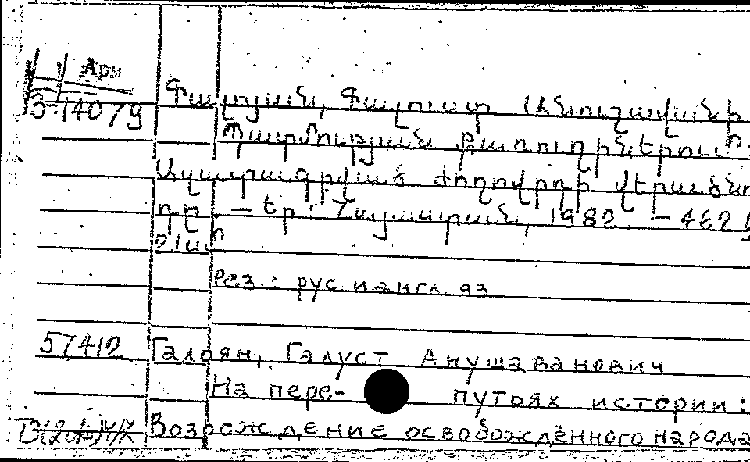 Арм
3-14079
Գալոյան, Գալուստ Անուշավանի
Պատմության քառուղիներում:
Ազատագրված ժողովրդի վերածնո
ղղ. — Եր.: Հայաստան, 1982. — 462
Рез.: рус. и англ. яз
57410 Галоян, Галуст Анушаванович
На пере- путьях истории:
Возрождение освобождённого народа